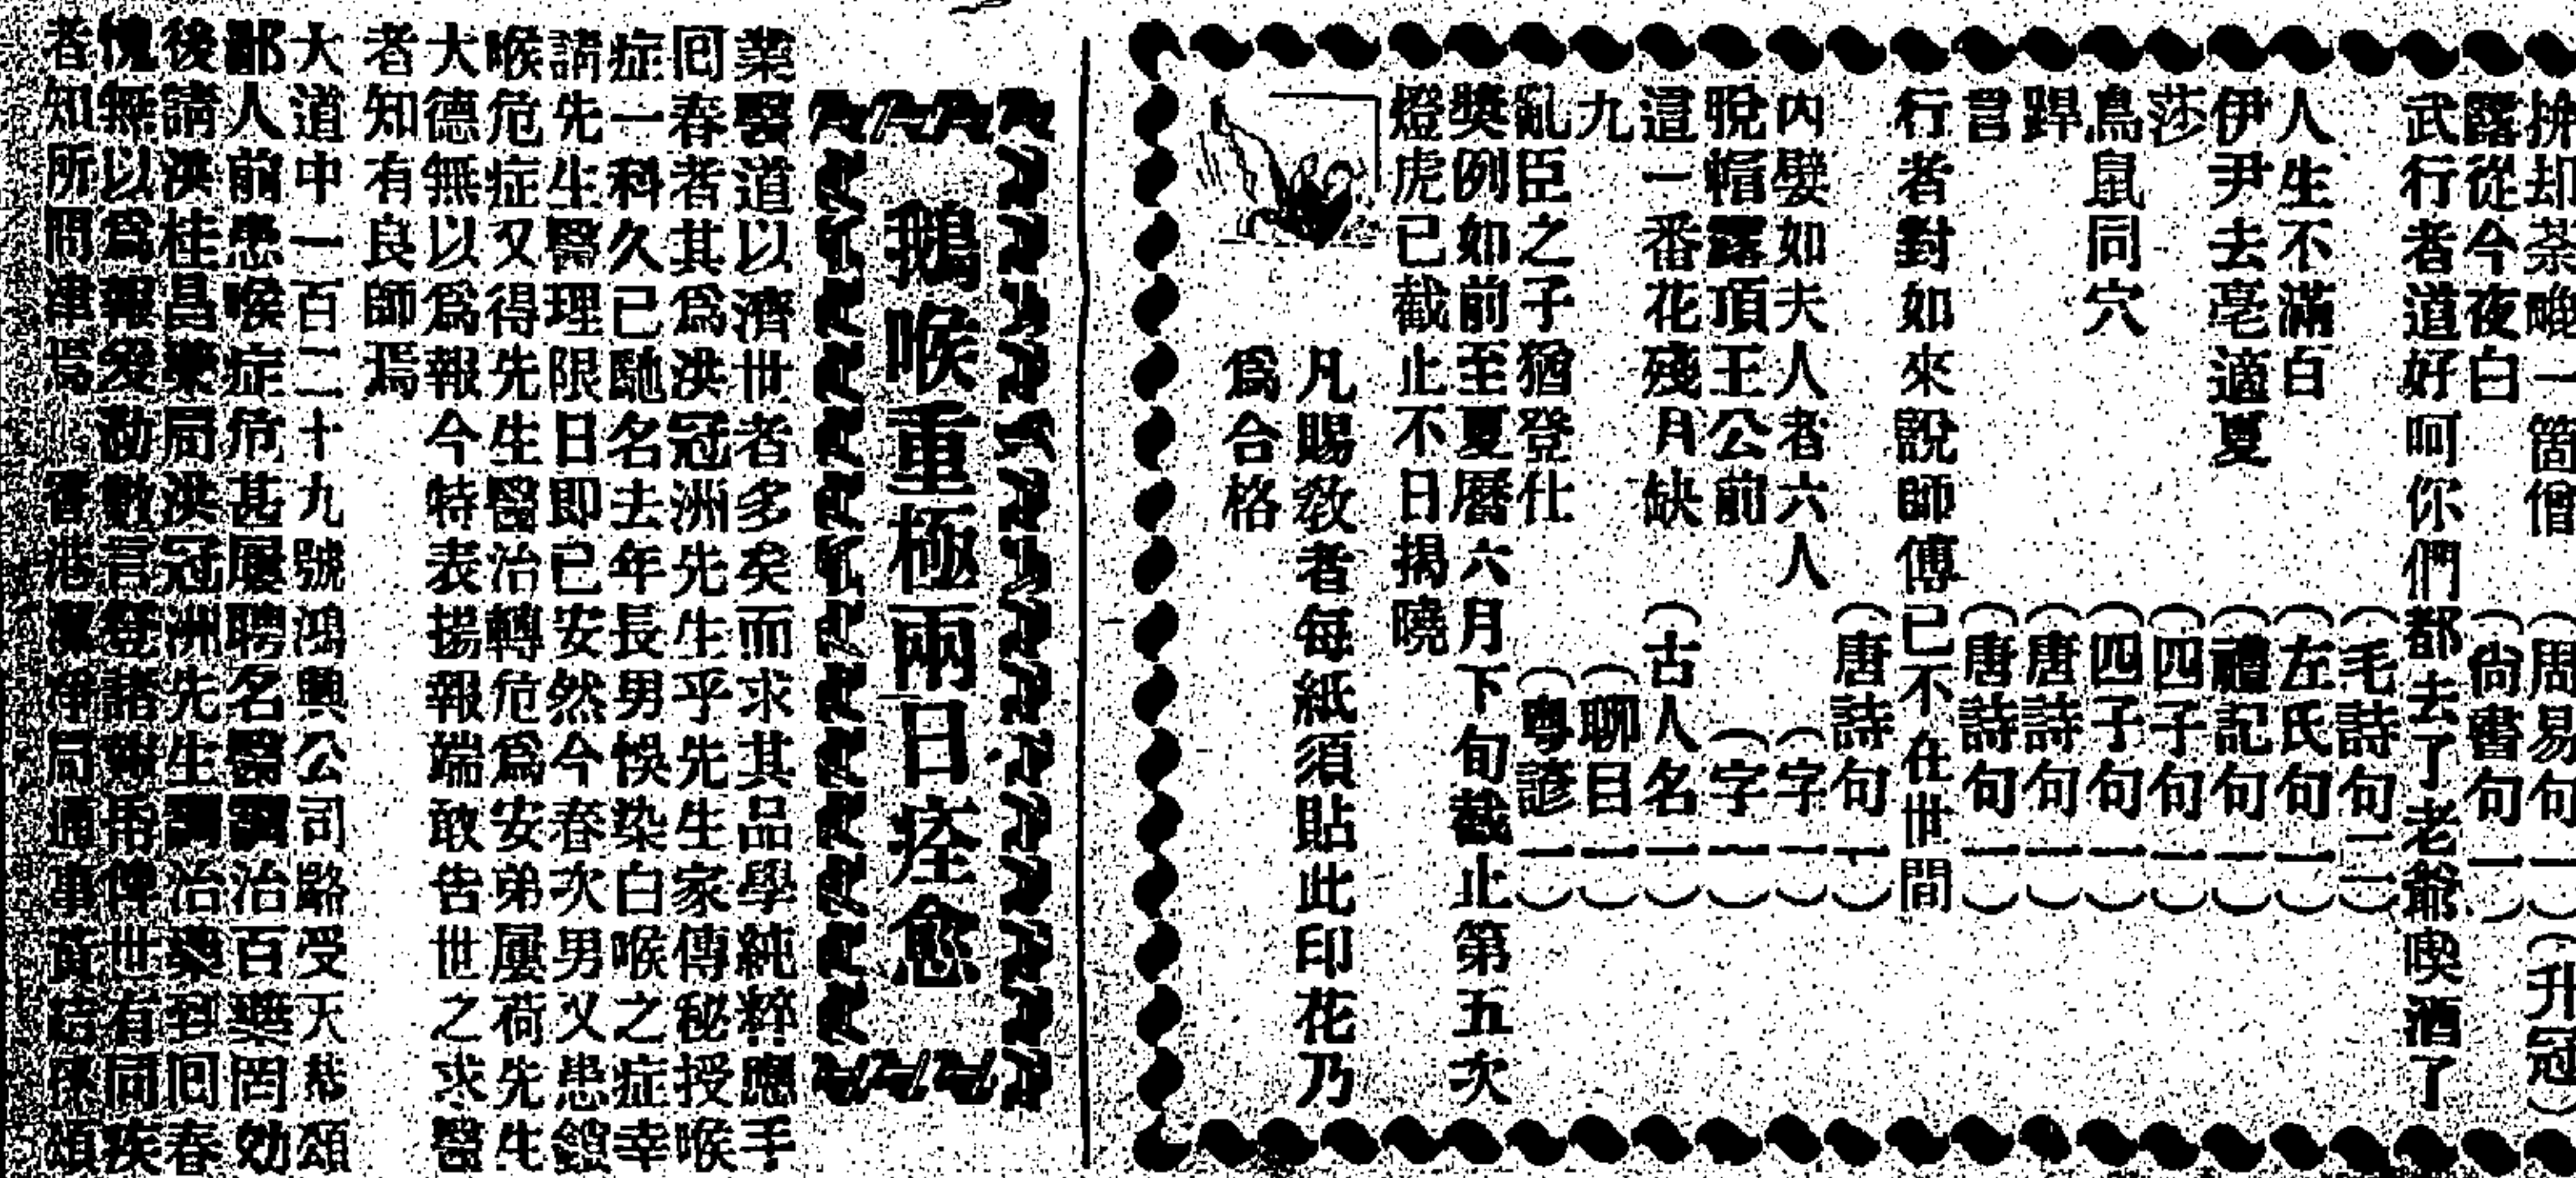 拚却荼毗一箇僧 (周易句一)(升冠)
露從今夜白 (尙書句一)
武行者道好呵你們都去了老爺喫酒了
(毛詩句二)
人生不滿百 (左氏句一)
伊尹去亳適夏 (禮記句一)
莎 (四子句一)
鳥鼠同穴 (四子句一)
(唐詩句一)
(唐詩句一)
行者對如來說師傅已不在世間
(唐詩句一)
內嬖如夫人者六人 (字一)
脫帽露頂王公前 (字一)
這一番花殘月缺 (古人名一)
九 (聊目一)
亂臣之子猶登仕 (粤諺一)
獎例如前至夏曆六月下旬截止第五次
燈虎已截止不日揭曉
凡賜敎者每紙須貼此印花乃
爲合格
鵝喉重極兩日痊愈
業醫道以濟世者多矣而求其品學純粹應手
回春者其爲洪冠洲先生乎先生家傳秘授喉
症一科久已馳名去年長男悞染白喉之症幸
請先生醫理限日即已安然今春次男又患鎖
喉危症又得先生醫治轉危爲安弟屢荷先生
大德無以爲報今特表揚報端敢告世之求醫
者知有良師焉
大道中一百二十九號鴻興公司路受天恭頌
鄙人前患喉症危甚屢聘名醫調治百藥罔効
後請洪桂昌藥局洪冠洲先生調治藥到回春
愧無以爲報爰勒數言登諸報帋俾世有同疾
者知所問津焉 香港潔淨局通事黃 頌